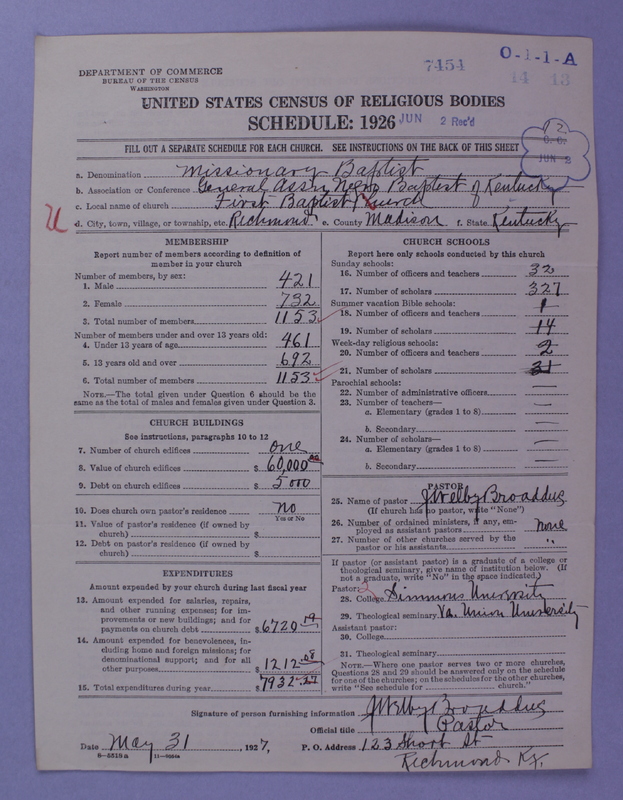 7454
O-1-1-A
14 13
DEPARTMENT OF COMMERCE
BUREAU OF THE CENSUS
WASHINGTON
UNITED STATES CENSUS OF RELIGIOUS BODIES
SCHEDULE: 1926
JUN 2 Rec'd
FILL OUT A SEPARATE SCHEDULE FOR EACH CHURCH. SEE INSTRUCTIONS ON THE BACK OF THIS SHEET
JUN 2
a. Denomination Missionary Baptist
b. Association or Conference General Assn Negro Baptist of Kentucky
c. Local name of church First Baptist Church
U
d. City, town, village, or township, etc. Richmond e. County Madison f. State Kentucky
MEMBERSHIP
Report number of members according to definition of
member in your church
Number of members, by sex:
1. Male 421
2. Female 732
3. Total number of members 1153
Number of members under and over 13 years old:
4. Under 13 years of age 461
5. 13 years old and over 692
6. Total number of members 1153
NOTE.—The total given under Question 6 should be the
same as the total of males and females given under Question 3.
CHURCH BUILDINGS
See instructions, paragraphs 10 to 12
7. Number of church edifices one
8. Value of church edifices $ 60,000 00
9. Debt on church edifices $ 5000
10. Does church own pastor's residence? No
Yes or No
11. Value of pastor's residence (if owned by
church) $
12. Debt on pastor's residence (if owned by
church) $
EXPENDITURES
Amount expended by your church during last fiscal year
13. Amount expended for salaries, repairs,
and other running expenses; for im-
provements or new buildings; and for
payments on church debt $ 6720 19
14. Amount expended for benevolences, in-
cluding home and foreign missions; for
denominational support; and for all
other purposes $ 1212 08
15. Total expenditures during year $ 7932 27
CHURCH SCHOOLS
Report here only schools conducted by this church
Sunday schools:
16. Number of officers and teachers 32
17. Number of scholars 327
Summer vacation Bible schools:
18. Number of officers and teachers 1
19. Number of scholars 14
Week-day religious schools:
20. Number of officers and teachers 2
21. Number of scholars 31
Parochial schools:
22. Number of administrative officers
23. Number of teachers—
a. Elementary (grades 1 to 8)
b. Secondary
24. Number of scholars—
a. Elementary (grades 1 to 8)
b. Secondary
PASTOR
25. Name of pastor J Welby Broaddus
(If church has no pastor, write "None")
26. Number of ordained ministers, if any, em-
ployed as assistant pastors none
27. Number of other churches served by the
pastor or his assistants "
If pastor (or assistant pastor) is a graduate of a college or
theological seminary, give name of institution below. (If
not a graduate, write "No" in the space indicated.)
Pastor:
28. College Simmons University
29. Theological seminary Va. Union University
Assistant pastor:
30. College
31. Theological seminary
NOTE.—Where one pastor serves two or more churches,
Questions 28 and 29 should be answered only on the schedule
for one of the churches; on the schedules for the other churches,
write "See schedule for church."
Signature of person furnishing information J Welby Broaddus
Official title Pastor
Date May 31, 1927, P. O. Address 123 Short St
Richmond Ky.